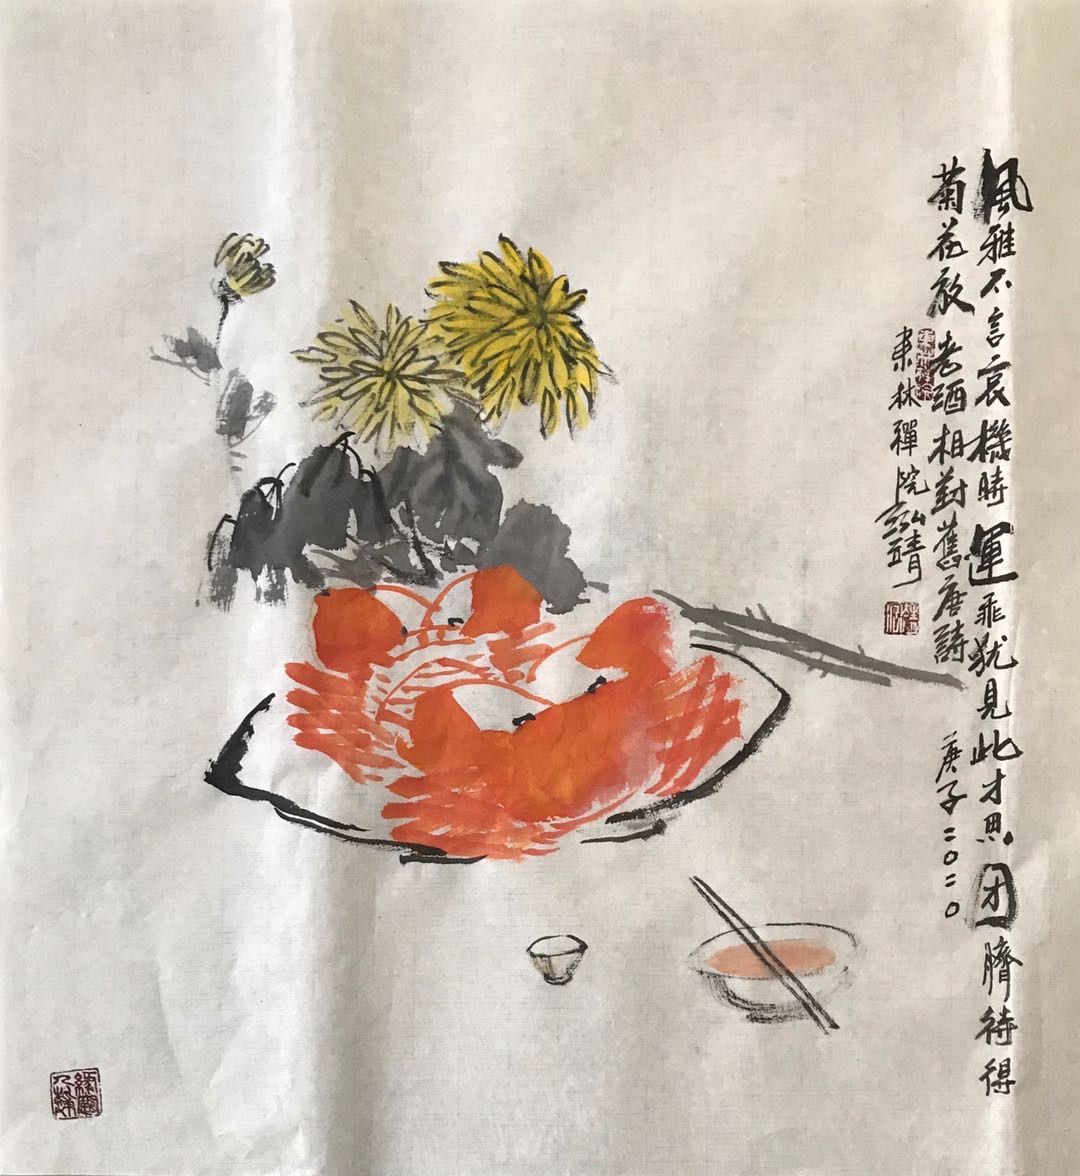 風雅不言哀機時運乖犹見此才思团臍待得
菊花放老酒相對舊唐詩 庚子二〇二〇
東林禪院弘靖